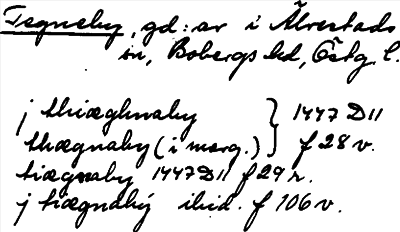 Tegneby, gd:ar i Älvestads
sn, Bobergs hd, Östg. l.
j thiæghnaby } 1447 D11
thægnaby (i marg.) } f 28 v.
tiægnaby 1447 D11 f 29 r.
j tiægnabý ibid. f 106 v.